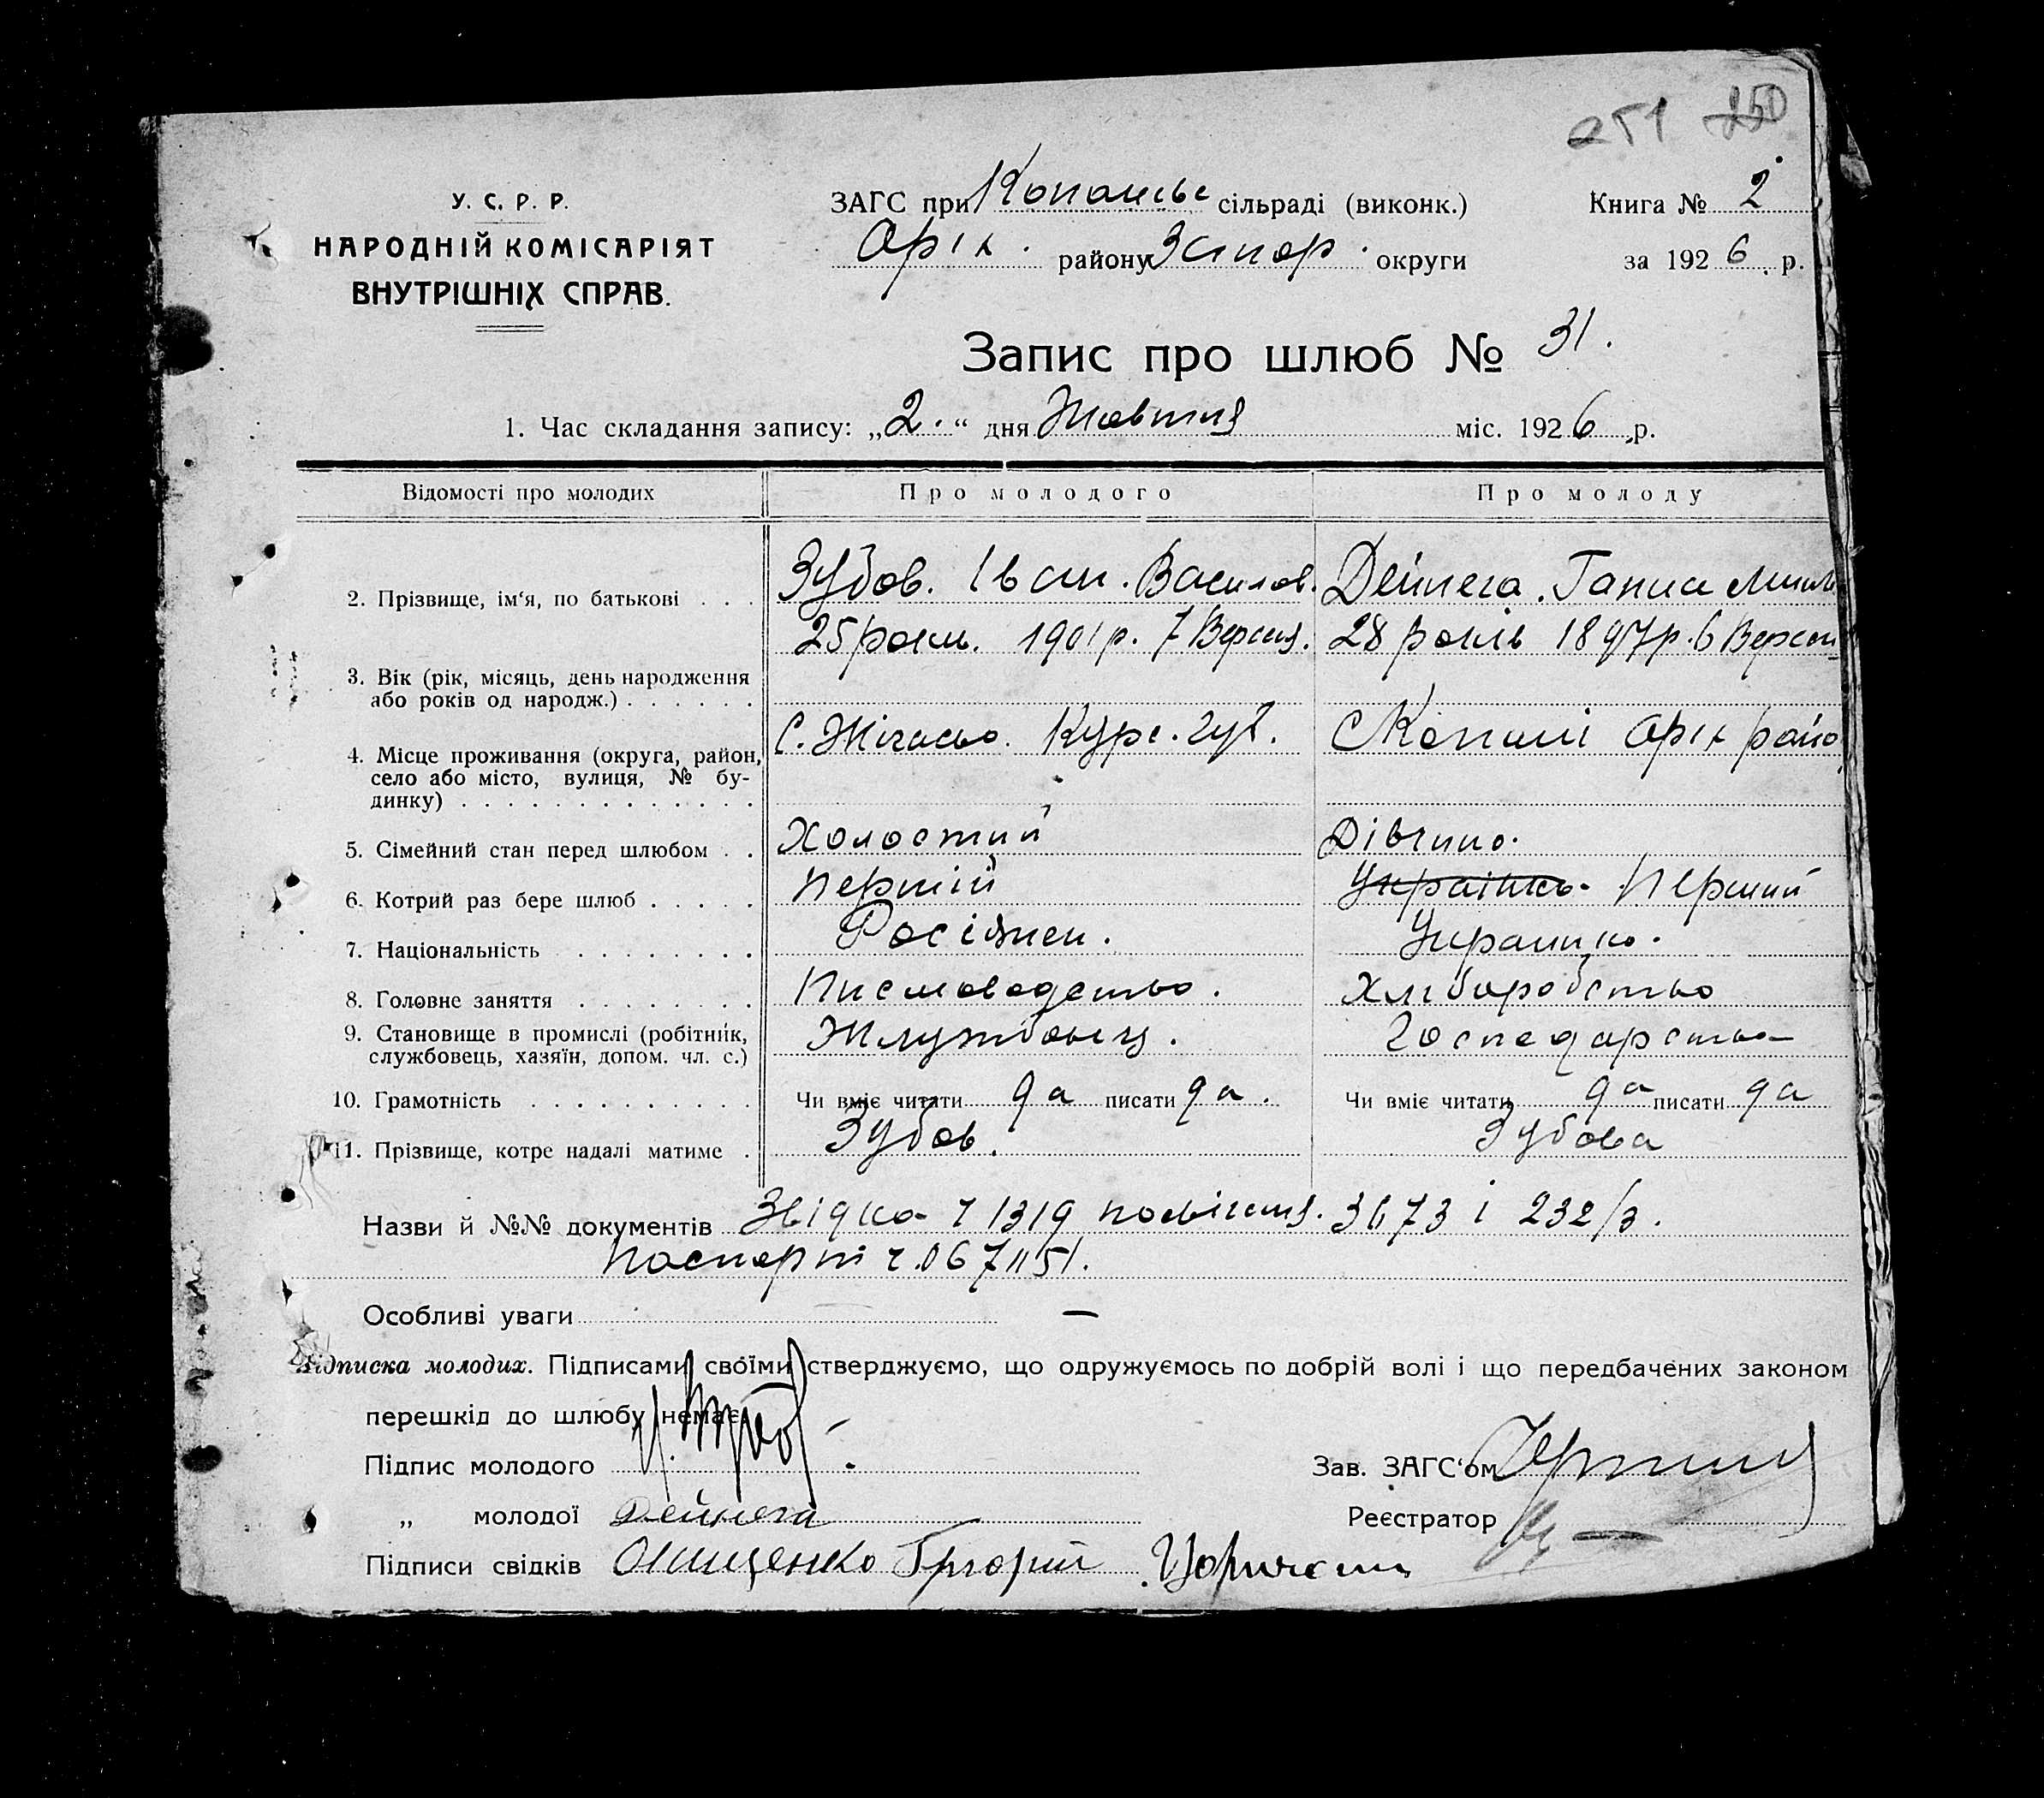 251 250
У. С. Р. Р.
НАРОДНІЙ КОМІСАРІЯТ
ВНУТРІШНІХ СПРАВ.
ЗАГС при Копансье сільраді (виконк.)
Оріх. району Запор. округи
Книга № 2
за 1926 р.
Запис про шлюб № 31.
1. Час складання запису: „2.“ дня Жовтня міс. 1926 р.
Відомості про молодих Про молодого Про молоду
2. Прізвище, ім‘я, по батькові . . . Зубов. Іван. Василов. Дейнега. Ганна
3. Вік (рік, місяць, день народження або років од народж.) . . . . . . 25 роки. 1901 р. 7 Версня. 28 років 1897 р. 6 Версн
4. Місце проживання (округа, район, село або місто, вулиця, № будинку) . . . . . . . . . . . . . С. Курс. губ. С Копані Оріх райо
5. Сімейний стан перед шлюбом . . Холостий Дівчина.
6. Котрий раз бере шлюб . . . . . Перший Українка. Перший
7. Національність . . . . . . . . Росіянен. Украинка.
8. Головне заняття . . . . . . . . Писмоводство. Хліборобство
9. Становище в промислі (робітник, службовець, хазяїн, допом. чл. с.) Жлужбовец. Господарство
10. Грамотність . . . . . . . . . . Чи вміє читати да писати да. Чи вміє читати да писати да
11. Прізвище, котре надалі матиме . Зубов. Зубова
Назви й №№ документів Звідка ч 1319 посвіення. 3673 і 232/3.
паспорт ч. 067151.
Особливі уваги —
Підписка молодих. Підписами своїми стверджуємо, що одружуємось по добрій волі і що передбачених законом
перешкід до шлюбу немає.
Підпис молодого Зав. ЗАГС‘ом
„ молодої Дейнега Реєстратор
Підписи свідків Онищенко Григорий